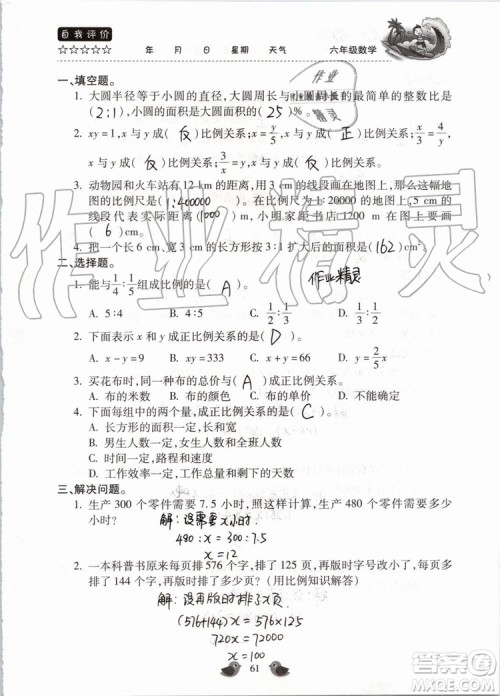 自我评价
☆☆☆☆☆ 年 月 日 星期 天气 六年级数学
一、填空题。
1. 大圆半径等于小圆的直径,大圆周长与小圆周长的最简单的整数比是
(2:1),小圆的面积是大圆面积的(25)%。
2. xy=1,x与y成(反)比例关系;x=y/5,x与y成(正)比例关系;x/4=3/y,
x与y成(反)比例关系。
3. 动物园和火车站有12 km的距离,用3 cm的线段画在地图上,那么这幅地
图的比例尺是(1:400000)。在一幅比例尺是1:20000的地图上,5 cm的
线段表示实际距离(1000)m,小明家距图书店1200 m在地图上要画
(6)cm。
4. 把一个长6 cm、宽3 cm的长方形按3:1扩大后的面积是(162)cm²。
二、选择题。
1. 能与1/4:1/5组成比例的是(A)。
作业精灵
A. 5:4 B. 4:5 C. 1/2:1/3 D. 1/3:1/2
2. 下面表示x和y成正比例关系的是(D)。
A. x-y=9 B. xy=333 C. x+y=66 D. y=2/5x
3. 买花布时,同一种布的总价与(A)成正比例关系。
A. 布的米数 B. 布的颜色 C. 布的单价 D. 布的质量
4. 下面每组中的两个量,成正比例关系的是(C)。
A. 长方形的面积一定,长和宽
B. 男生人数一定,女生人数和全班人数
C. 时间一定,路程和速度
D. 工作效率一定,工作时间和工作总量
三、解决问题。
1. 生产300个零件需要7.5小时,照这样计算,生产480个零件需要多少
小时?
解:设需要x小时.
480:x=300:7.5
x=12
2. 一本科普书原来每页排576个字,排了125页,再版时字号改小了,每页
多排了144个字,再版时排了多少页?(用比例知识解答)
解:设再版时排了x页.
(576+144)x=576×125
720x=72000
x=100
61
作业精灵
答案圈